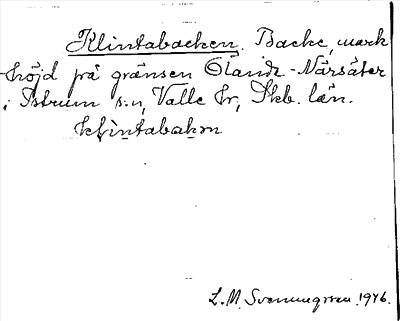 Klintabacken. Backe, mark
-höjd på gränsen Öland-Närsäter
i Istrum s:n, Valle hr, Skb. län.
klintabakɐn
L. M. Svenungsson 1946.